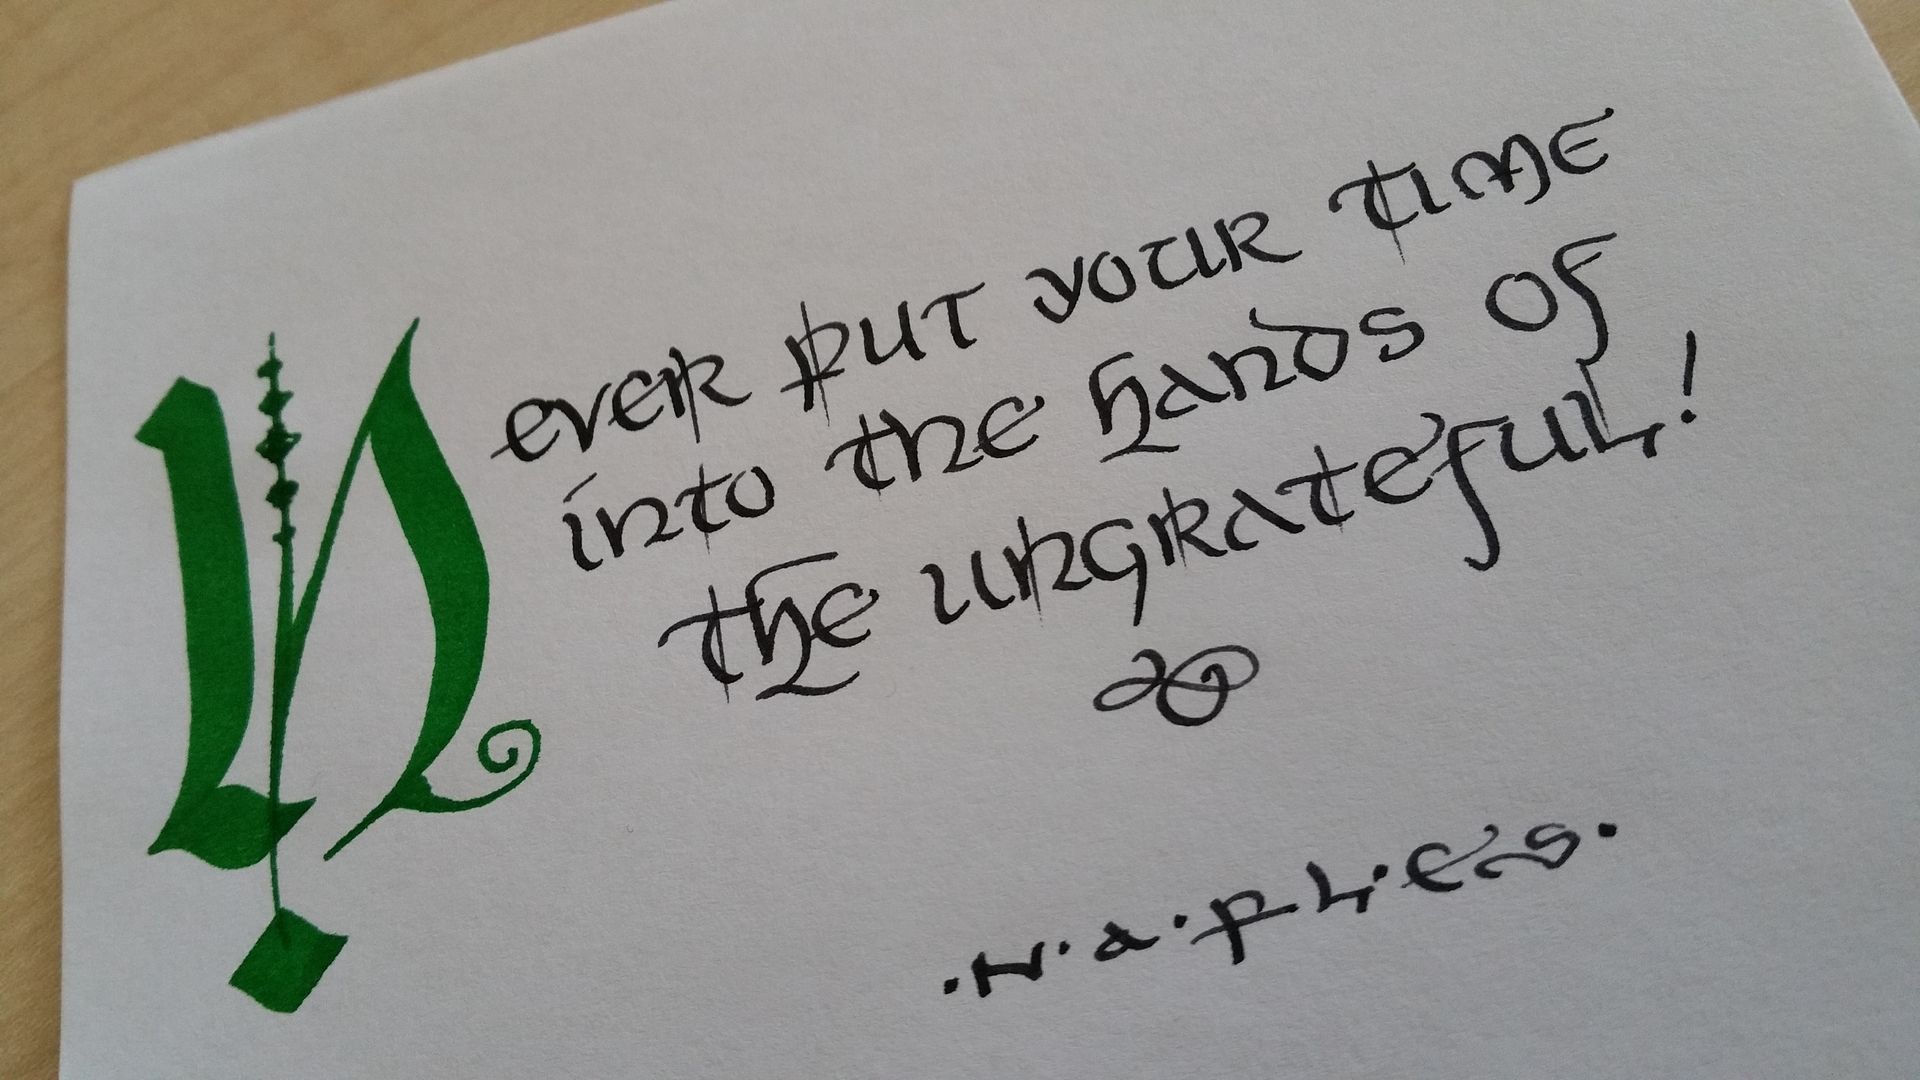 Never put your time
into the hands of
the ungrateful!
.N.a.ples.